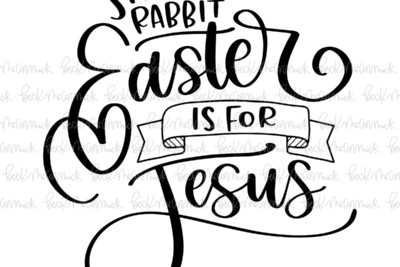 RABBIT
Easter
IS FOR
Jesus